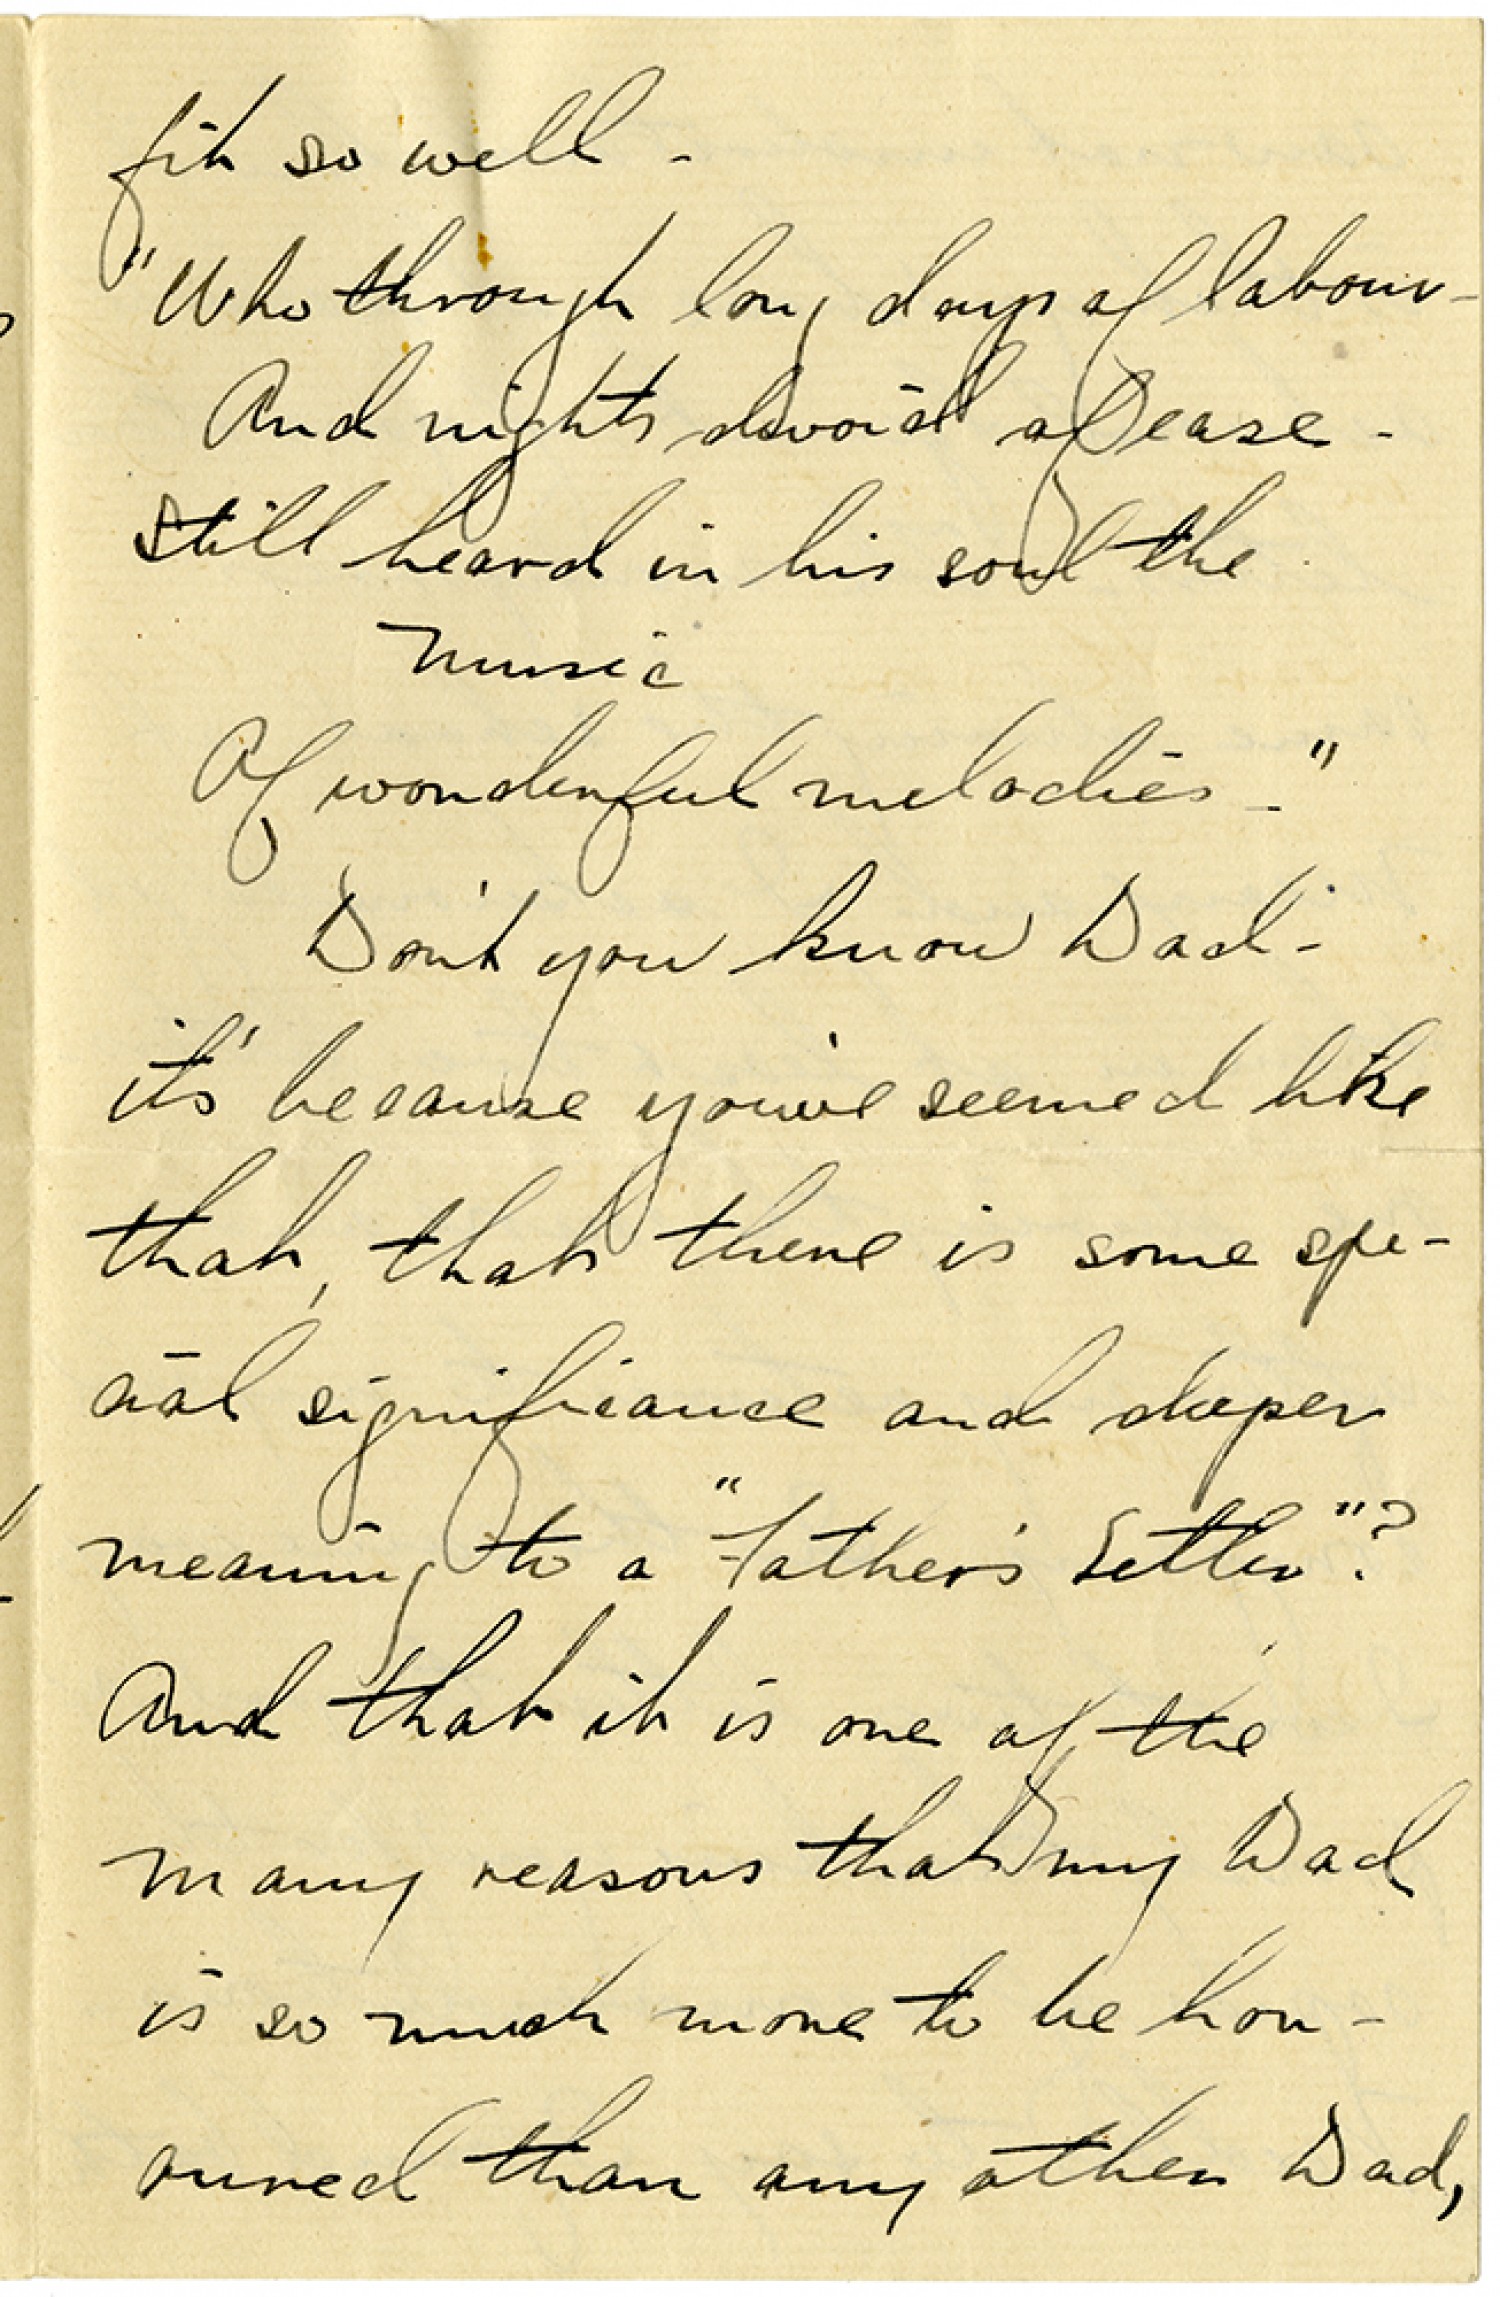 fit so well -
"Who through long days of labour -
And nights devoid of ease -
Still heard in his soul the
music
Of wonderful melodies -"
Don't you know Dad -
it's because you've seemed like
that, that there is some spe-
cial significance and deeper
meaning to a "Father's Letter"?
And that it is one of the
many reasons that my Dad
is so much more to be hon-
oured than any other Dad,